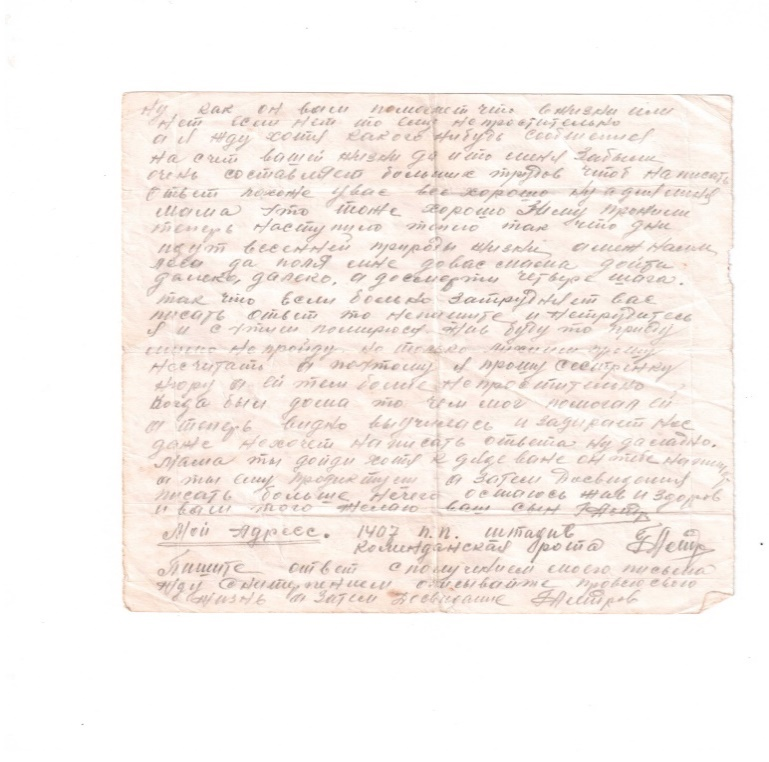 ну как он вам помогает что в жизни или
нет если нет то ему непростительно
а я жду хотя какого нибудь сообщения
на счет вашей жизни да или меня забыли
очень составляет больших трудов чтоб написать
ответ похоже у вас все хорошо ну а для меня
мама это тоже хорошо Зиму прожили
теперь наступило тепло так что дни
идут весенней природы жизни а
леса да поля мне до вас мама дойти
далеко, далеко. а до смерти четыре шага.
так что если больно затрудняет вас
писать ответ то непишите и нетрудитесь
Я и с этим помирюся Жив буду то приду
мимо непройду. но только
несчитать а поэтому я прошу сестренку
Нюру а ей тем более непростительно
Когда был дома то чем мог помогал ей
а теперь видно выучилась и задирает нос
даже нехочет написать ответа ну да ладно.
Мама ты дойди хотя к деде ване он тебе напишет
а ты ему продиктуеш а Затем Досвидания
писать больше нечего остаюсь жив и здоров
и вам того желаю ваш сын Петр
Мой Адресс. 1407 п.п. штадив
коминданская врота Петр
Пишите ответ с получением моего письма
жду снатерпением описывайте провсю свою
жизнь а Затем Досвидание Петров